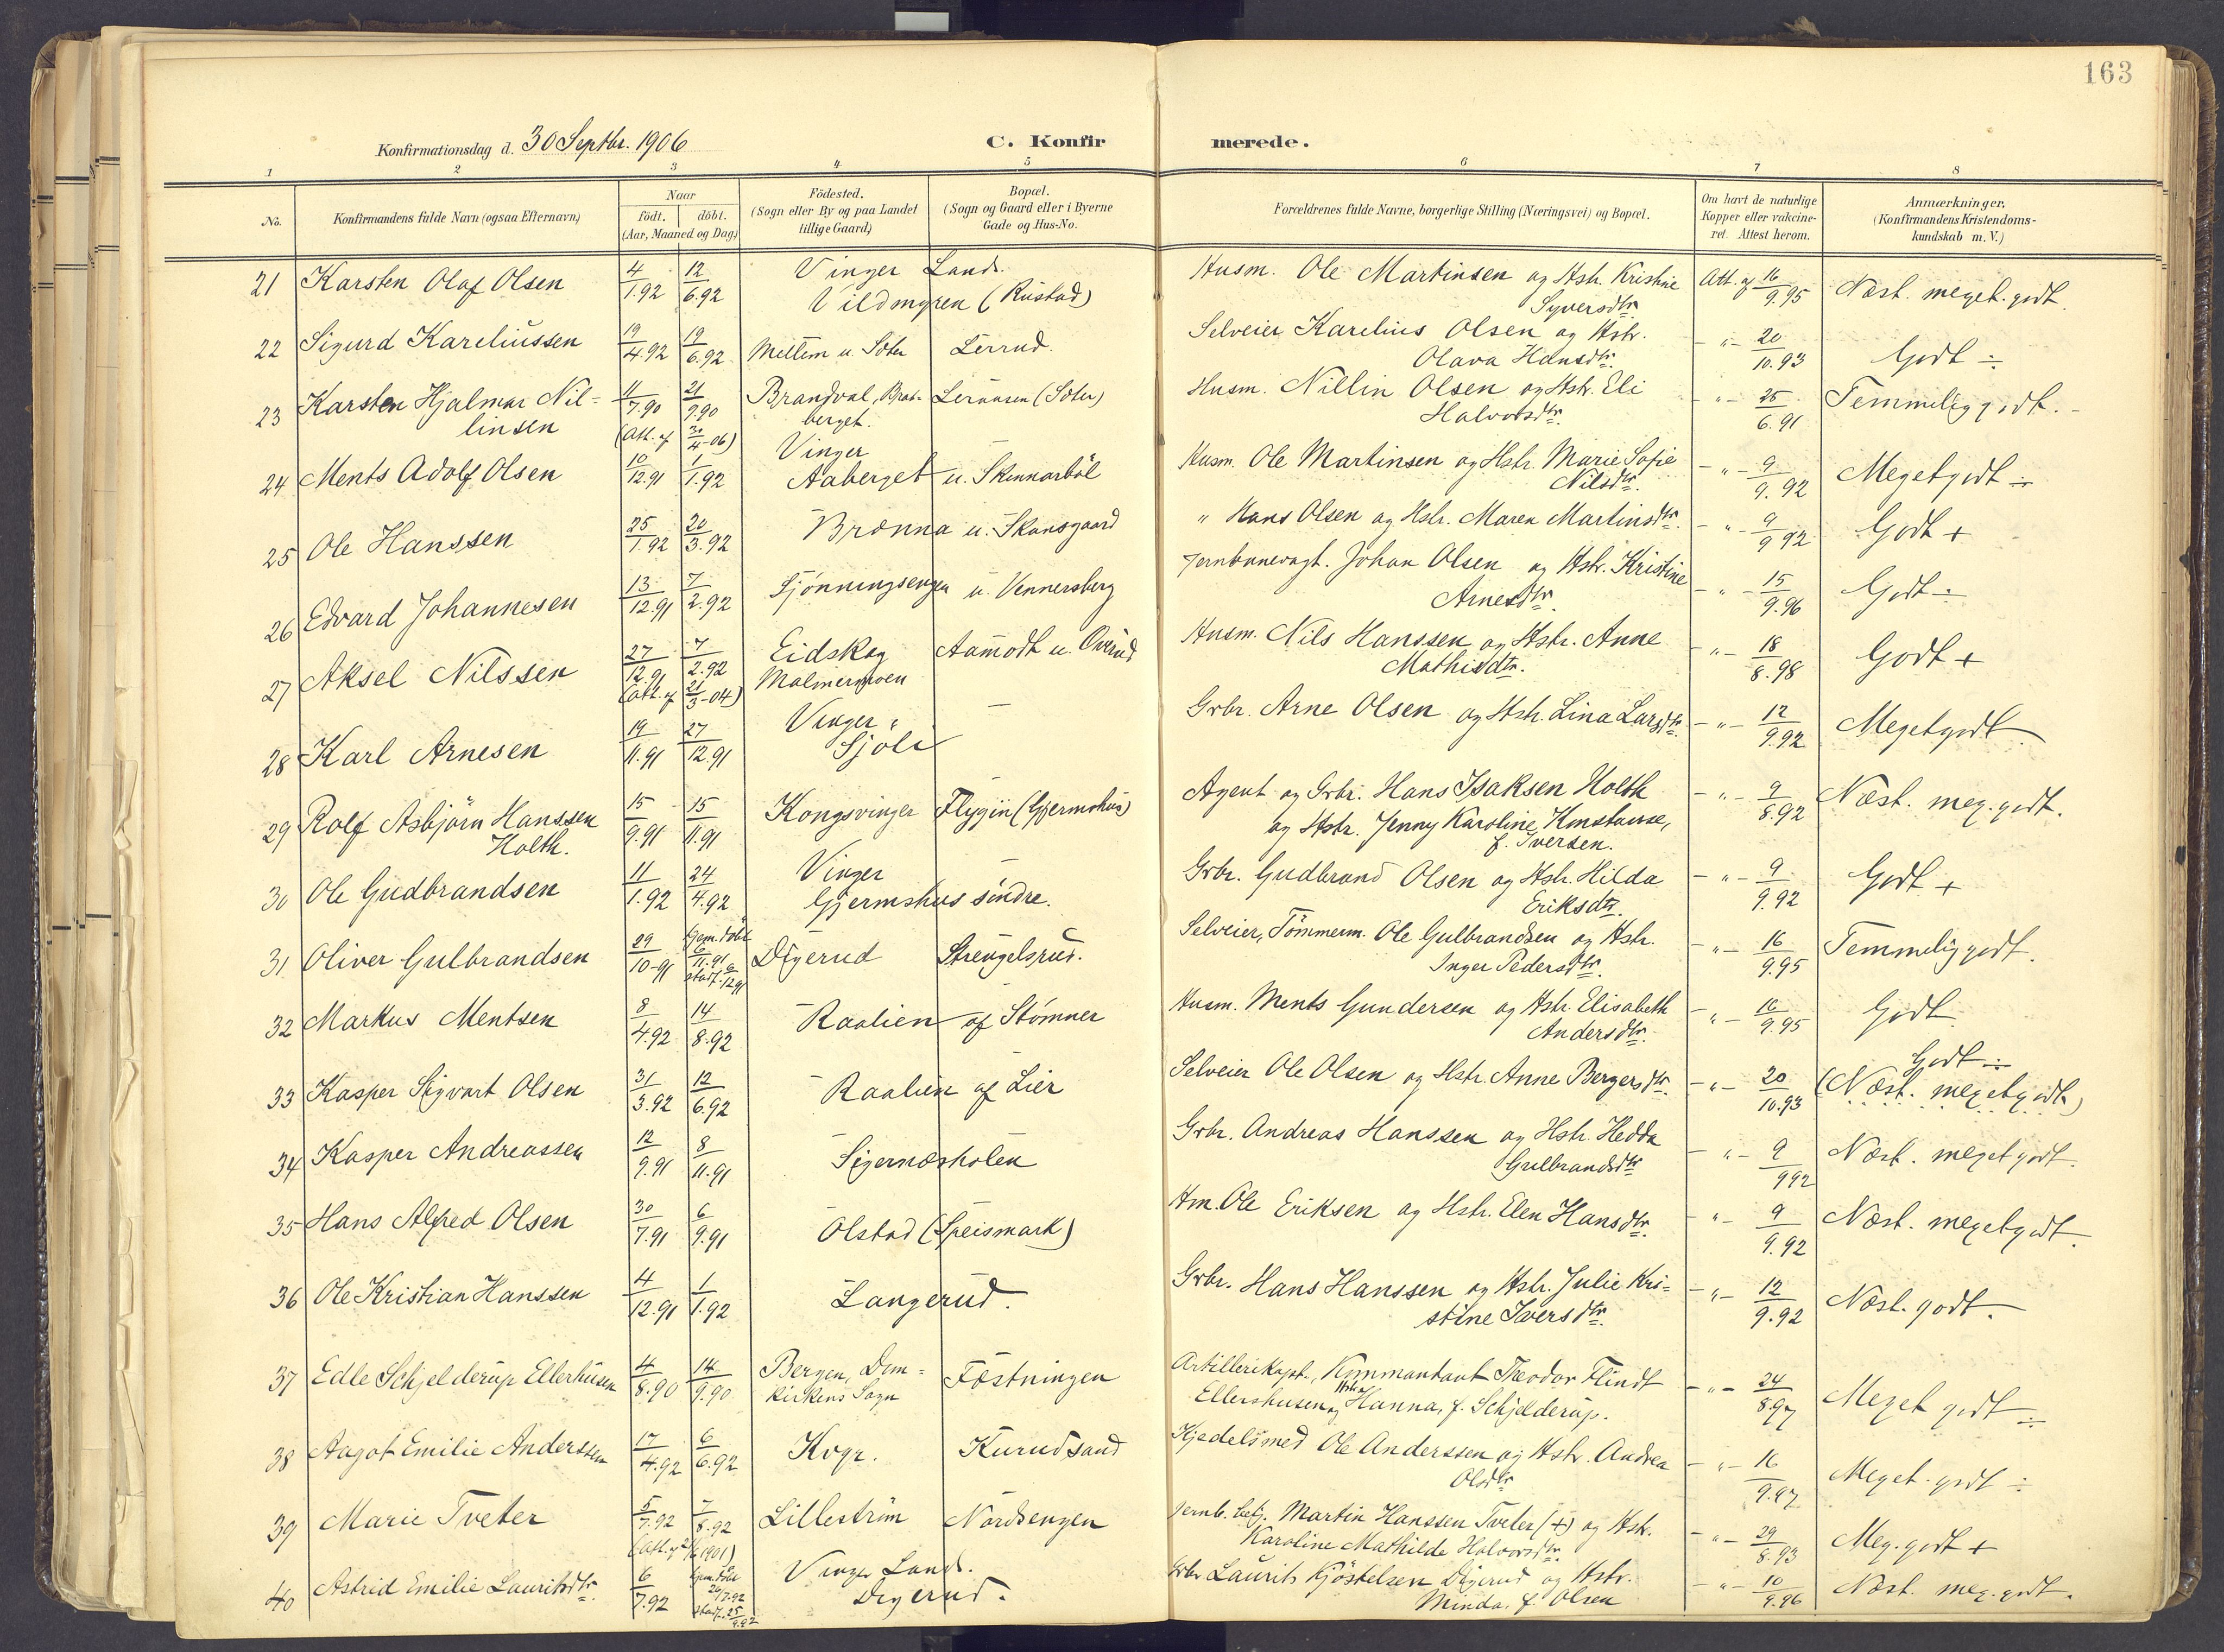 163
Konfirmationsdag d. 30 Septbr. 1906
C. Konfirmerede.
1 2 3 4 5 6 7 8
No. Konfirmandens fulde Navn (ogsaa Efternavn) Naar født. døbt. (Aar, Maaned og Dag) Fødested. (Sogn eller By og paa Landet tillige Gaard) Bopæl. (Sogn og Gaard eller i Byerne Gade og Hus-No. Forældrenes fulde Navne, borgerlige Stilling (Næringsvei) og Bopæl. Om havt de naturlige Kopper eller vakcineret. Attest herom. Anmærkninger. (Konfirmandens Kristendomskundskab m. V.)
21 Karsten Olaf Olsen 4/1.92 12/6.92 Vinger Lands. Vildmyren (Rustad) Husm. Ole Martinsen og Hstr. Kristine Syversdtr. Att. af 16/9.95 Næst. meget godt
22 Sigurd Kareliussen 19/4.92 19/6.92 Mellem u. Sæter Lerrud. Selveier Karelius Olsen og Hstr. Olava Hansdtr. -"- 20/10.93 Godt ÷
23 Karsten Hjalmar Nillinsen 11/7.90 21/9.90 (Att. af 30/4-06) Brandval, Bratberget. (Sæter) Husm. Nillin Olsen og Hstr. Eli Halvorsdtr. -"- 25/6.91 Temmelig godt.
24 Ments Adolf Olsen 10/12.91 1/1.92 Vinger Aaberget u. Skinnarböl Husm. Ole Martinsen og Hstr. Marie Sofie Nilsdtr. -"- 9/9.92 Megetgodt ÷
25 Ole Hanssen 25/1.92 20/3.92 Brænna u. Skansgaard " Hans Olsen og Hstr. Maren Martinsdtr. -"- 9/9 92 Godt +
26 Edvard Johannesen 13/12.91 7/2.92 Sjønnungsengen u. Vennersberg Jernbanevagt. Johan Olsen og Hstr. Kristine Arnesdtr. -"- 15/9.96 Godt ÷
27 Aksel Nilssen 27/12.91 7/2.92 (Att. af 21/3-04) Eidskog Malmermoen Aamodt u. Overud Husm. Nils Hanssen og Hstr. Anne Mathisdtr. -"- 18/8.98 Godt +
28 Karl Arnesen 19/11.91 27/12.91 Vinger Sjöli Grbr. Arne Olsen og Hstr. Lina Larsdtr. -"- 12/9.92 Megetgodt
29 Rolf Asbjørn Hanssen Holth. 15/9.91 15/11.91 Kongsvinger Flygin (Gjermshus) Agent og Grbr. Hans Isaksen Holth og Hstr. Jenny Karoline Konstanse, f. Iversen. -"- 9/8.92 Næst. meg. godt.
30 Ole Gudbrandsen 11/1.92 24/4.92 Vinger Gjermshus søndre. Grbr. Gudbrand Olsen og Hstr. Hilda Eriksdtr. -"- 9/9.92 Godt +
31 Oliver Gulbrandsen 29/10-91 Hjem. døbt 6/11.91 stadf. 12.91 Digerud Strengelsrud. Selveier, Tømmerm. Ole Gulbrandsen og Hstr. Inger Pedersdtr. -"- 16/9.95 Temmelig godt.
32 Markus Mentsen 8/4.92 14/8.92 Raalien af Stømner Husm. Ments Gundersen og Hstr. Elisabeth Andersdtr. -"- 16/9.95 Godt
33 Kasper Sigvart Olsen 31/3.92 12/6.92 Raalien af Lier Selveier Ole Olsen og Hstr. Anne Bergersdtr. -"- 20/10.93 Godt ÷ (Næst. megetgodt)
34 Kasper Andreassen 12/9.91 8/11.91 Sigernæsholen Grbr. Andreas Hanssen og Hstr. Hedda Gulbrandsdtr. -"- 9/992 Næst. megetgodt.
35 Hans Alfred Olsen 30/7.91 6/9.91 Olstad (Speismark) Hm. Ole Eriksen og Hstr. Elen Hansdtr. -"- 9/9.92 Næst. megetgodt.
36 Ole Kristian Hanssen 4/12.91 1/1.92 Langerud. Grbr. Hans Hanssen og Hstr. Julie Kristine Iversdtr. -"- 12/9.92 Næst. godt.
37 Edle Schjelderup Ellerhusen 4/8.90 14/9.90 Bergen, Domkirkens Sogn Fæstningen Artillerikapt., Kommandant Theodor Flindt Ellershusen og Hstr. Hanna, f. Schjelderup. -"- 24/8.97 Meget godt ÷
38 Aagot Emilie Anderssen 17/4.92 6/6.92 Kvgr. Kurudsand Kjedelsmed Ole Anderssen og Hstr. Andrea Olsdtr -"- 16/9.97 Meget godt ÷
39 Marie Tveter 5/7.92 7/8.92 (Att. af 2/6 1901) Lillestrøm Nordsengen Jernb. betj. Martin Hanssen Tveter (+) og Hstr. Karoline Mathilde Halvorsdtr. -"- 29/8.93 Meg. godt +
40 Astrid Emilie Lauritsdtr. 6/7.92 Hjem. døbt 20/7.92 stadf. 25/9.92 Vinger Lands. Digerud. Grbr Laurits Kjöstelsen Digerud og Hstr. Minda, f. Olsen -"- 10/9.96 Næst. meg. godt.